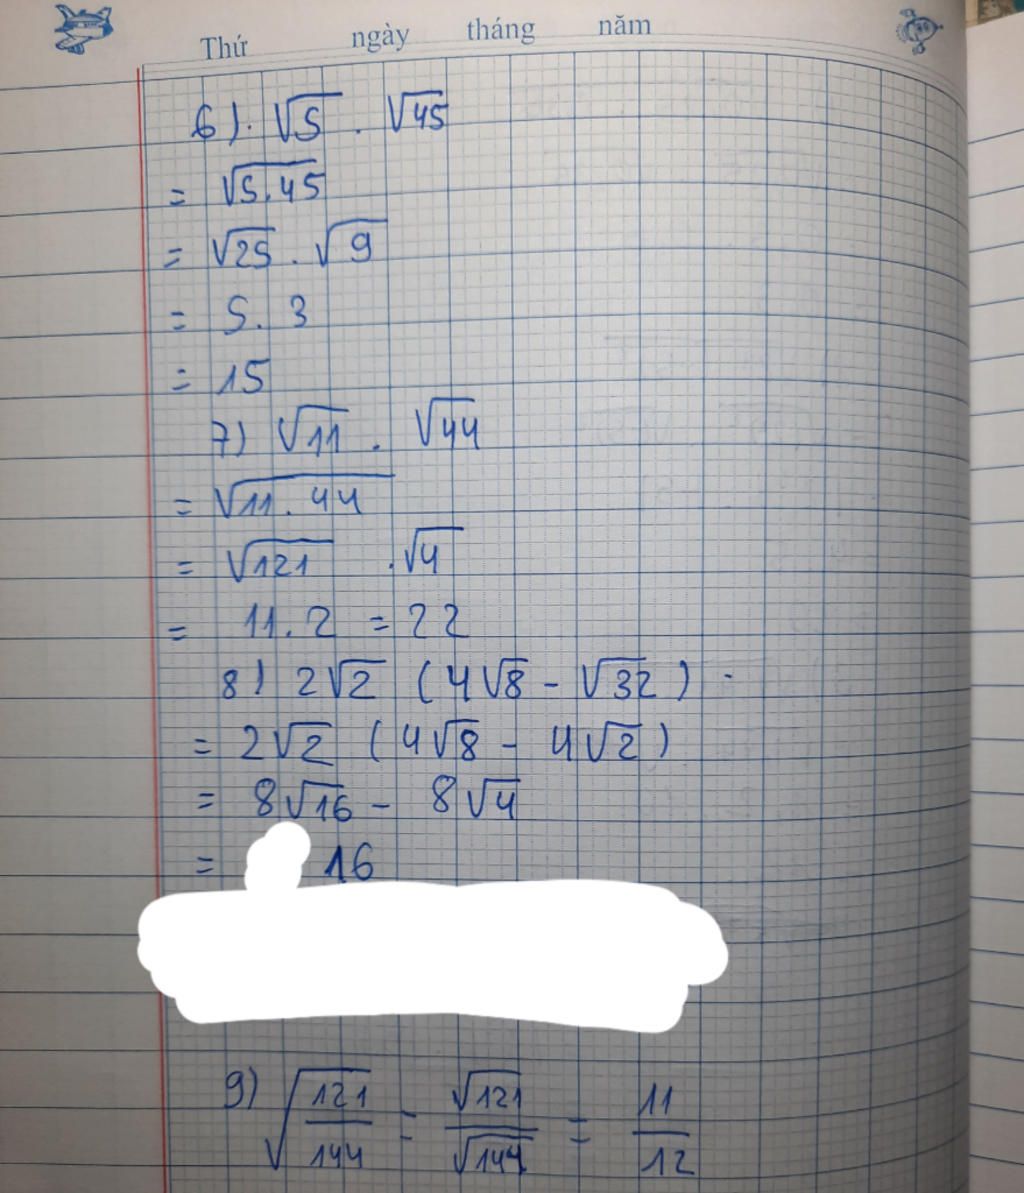 Thứ ngày tháng năm
6). √5 . √45
= √5.45
= √25 . √9
= 5. 3
= 15
7) √11 . √44
= √11.44
= √121 . √4
= 11.2 = 22
8) 2√2 (4√8 - √32) .
= 2√2 (4√8 - 4√2)
= 8√16 - 8√4
= 16
9) √(121/144) = √121/√144 = 11/12